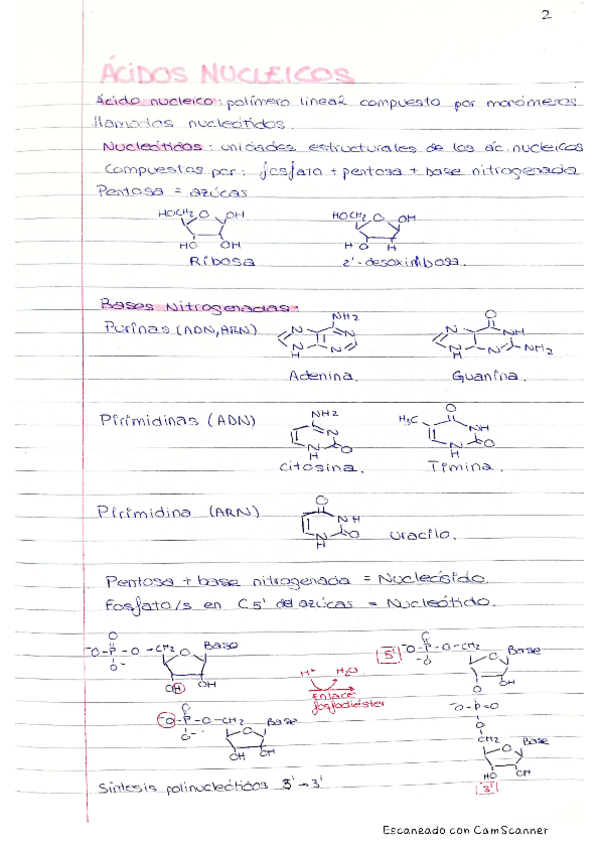 2
ÁCIDOS NUCLEICOS
Ácido nucleico: polímero lineal compuesto por monómeros
llamados nucleótidos.
Nucleótidos: unidades estructurales de los ác. nucleicos
Compuestos por: fosfato + pentosa + base nitrogenada
Pentosa = azúcas
HOCH2 O OH
HO OH
Ribosa
HOCH2 O OH
HO H
2'-desoxirribosa.
Bases Nitrogenadas:
Purinas (ADN, ARN)
NH2
N N
N N
H
Adenina.
O
N NH
N N NH2
H
Guanina.
Pirimidinas (ADN)
NH2
N
N O
H
citosina.
O
H3C NH
N O
H
Timina.
Pirimidina (ARN)
O
NH
N O
H
uracilo.
Pentosa + base nitrogenada = Nucleósido.
Fosfato/s en C5' del azúcas = Nucleótido.
O
-O-P-O-CH2 O Base
O-
OH OH
O
-O-P-O-CH2 Base
O- O
OH OH
H+ H2O
Enlace
fosfodiéster
5' O
-O-P-O-CH2 Base
-O O
O OH
-O-P=O
O
CH2 Base
O
HO OH
3'
Síntesis polinucleótidos 5' → 3'
Escaneado con CamScanner